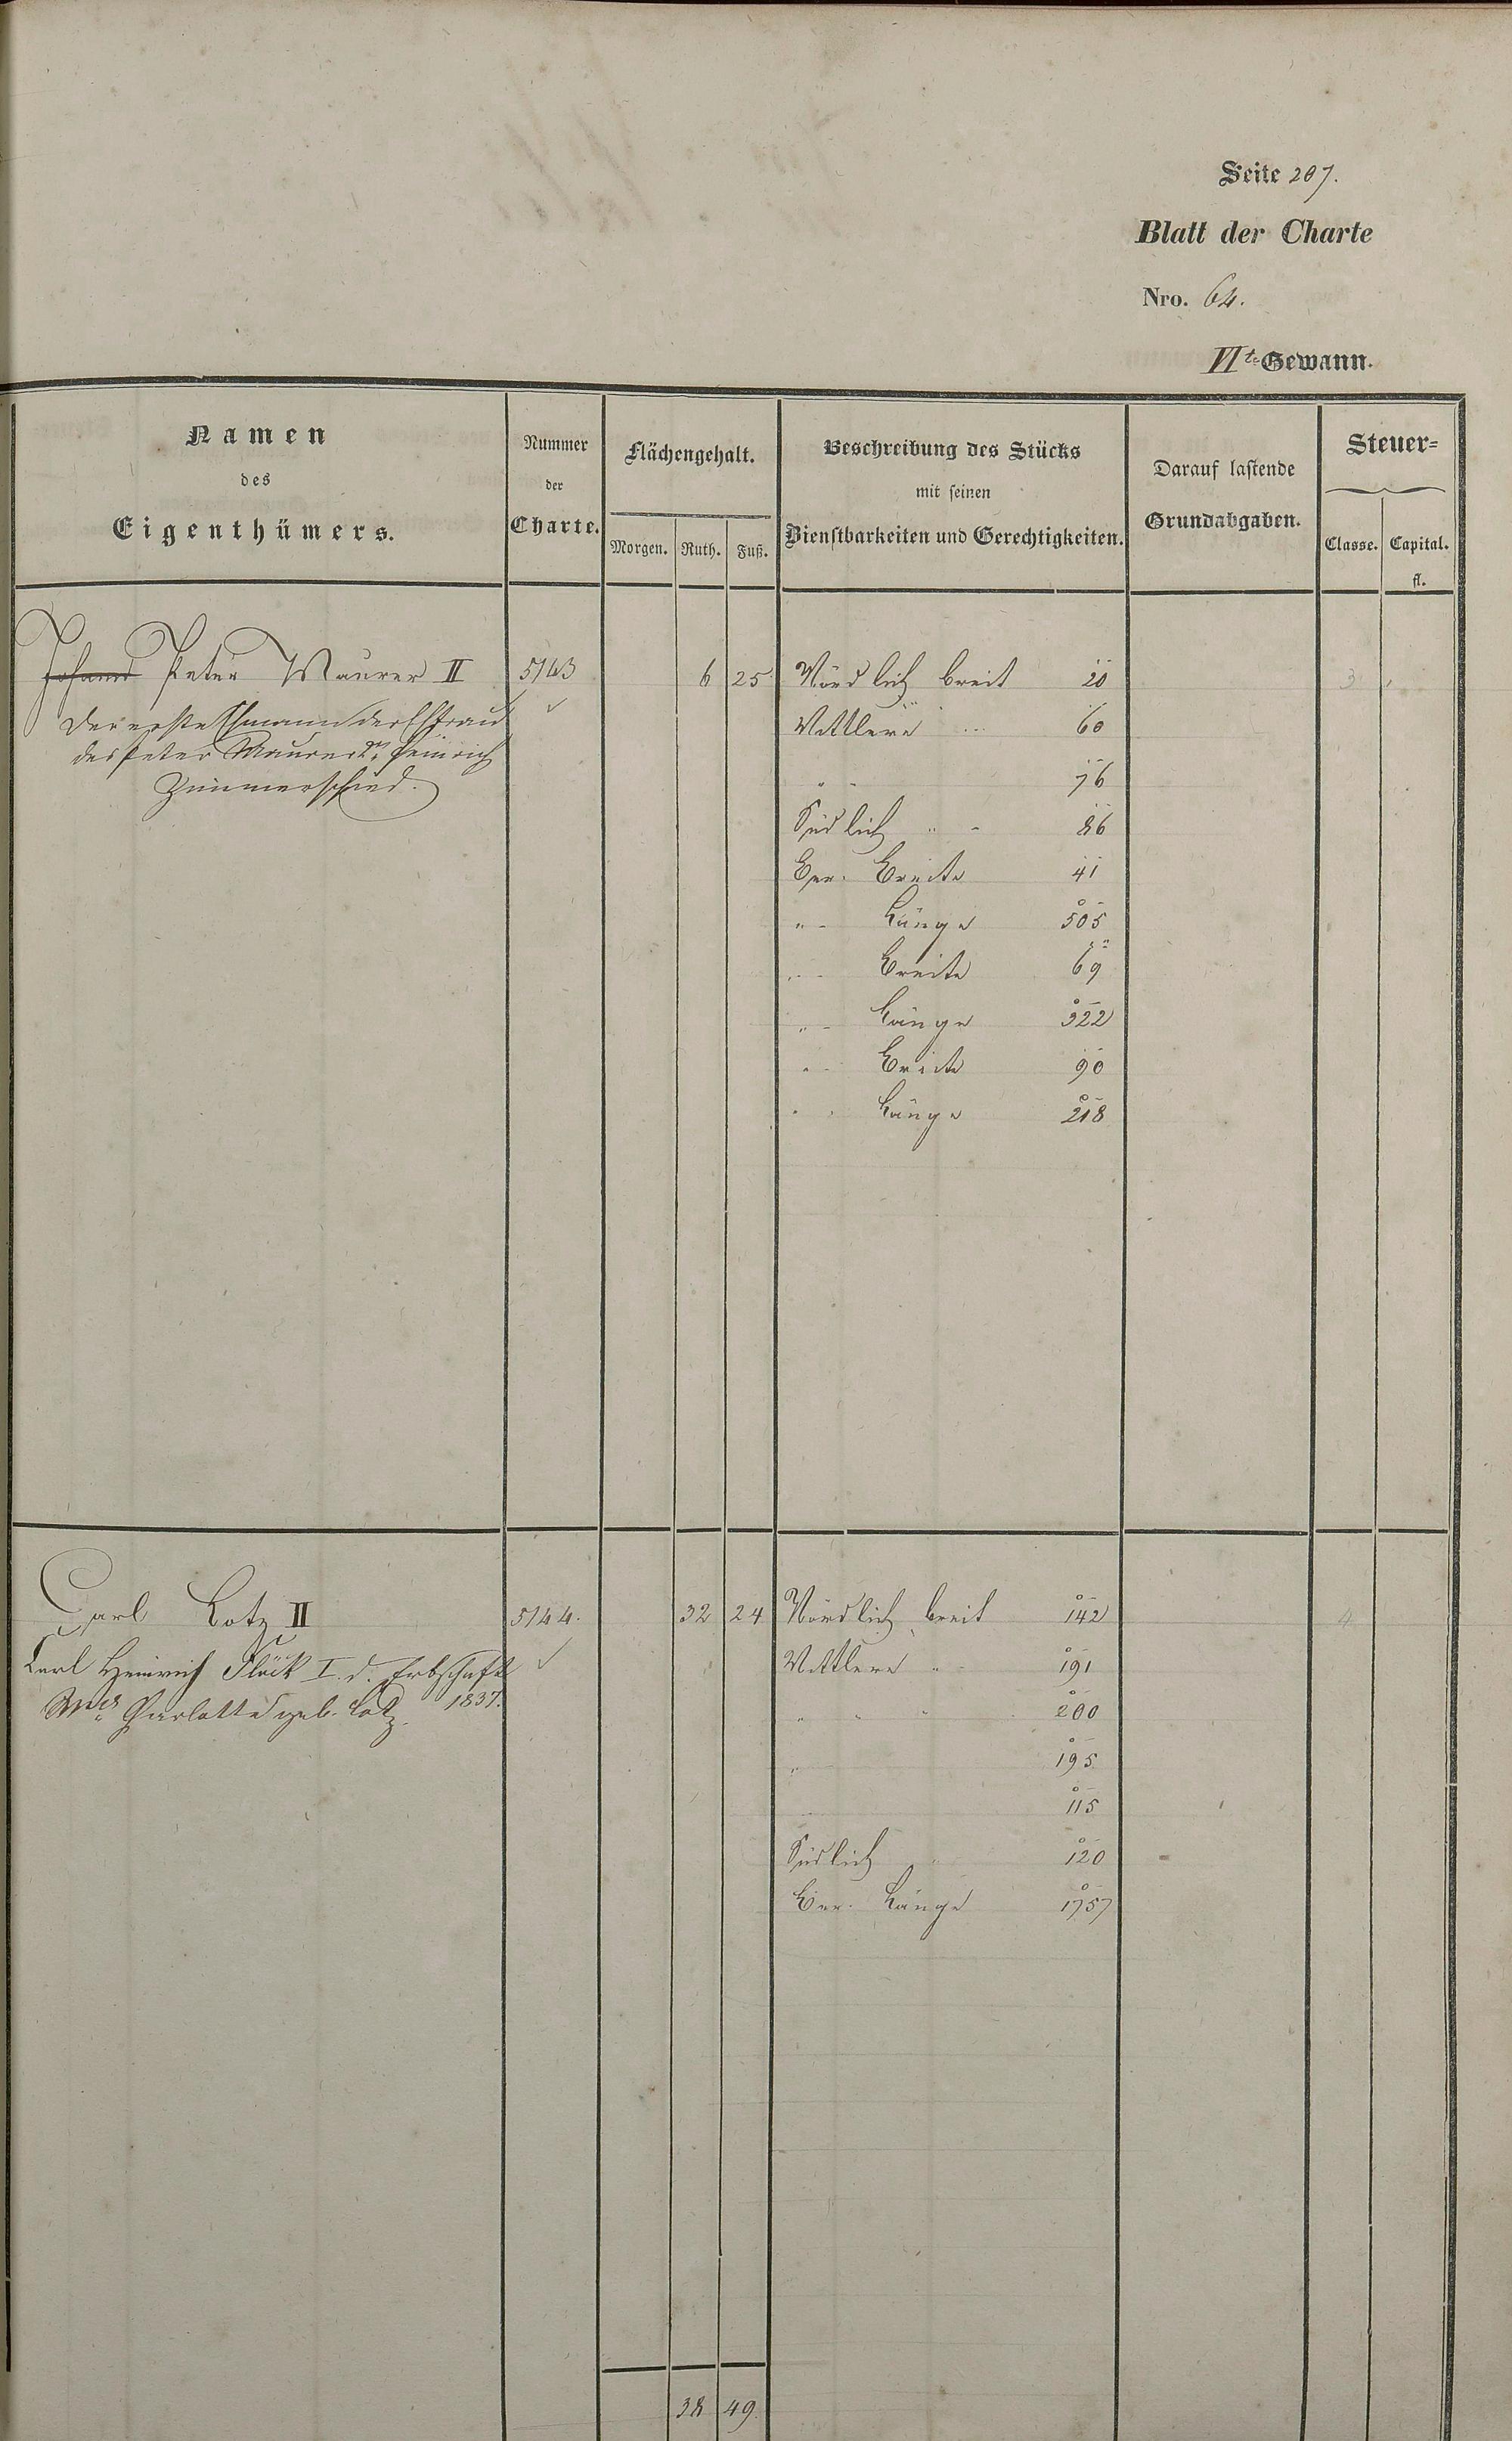 Seite 207.
Blatt der Charte
Nro. 64.
VIte Gewann.
Namen
des
Eigenthümers.
Nummer
der
Charte.
Flächengehalt.
Morgen. Ruth. Fuß.
Beschreibung des Stücks
mit seinen
Dienstbarkeiten und Gerechtigkeiten.
Darauf lastende
Grundabgaben.
Steuer=
Classe. Capital.
fl.
Johann Peter Maurer II 5143 6 25 Nördlich breit 20 3
Der erste Ehmann der Ehfrau
des Peter Maurer Heinrich
Zimmerschied.
Mittlere " 60
" " 76
Südlich " " 86
Ber. Breite 41
" Länge 505
" Breite 69
" Länge 322
" Breite 90
" Länge 218
Carl Lotz II 5144. 32 24 Nördlich breit 142 4
Carl Heinrich Flöck I. d. Erbschaft
Charlotte geb. Lotz. 1837.
Mittlere " 191
" " " 200
" 195
115
Südlich " 120
Ber. Länge 1757
38 49